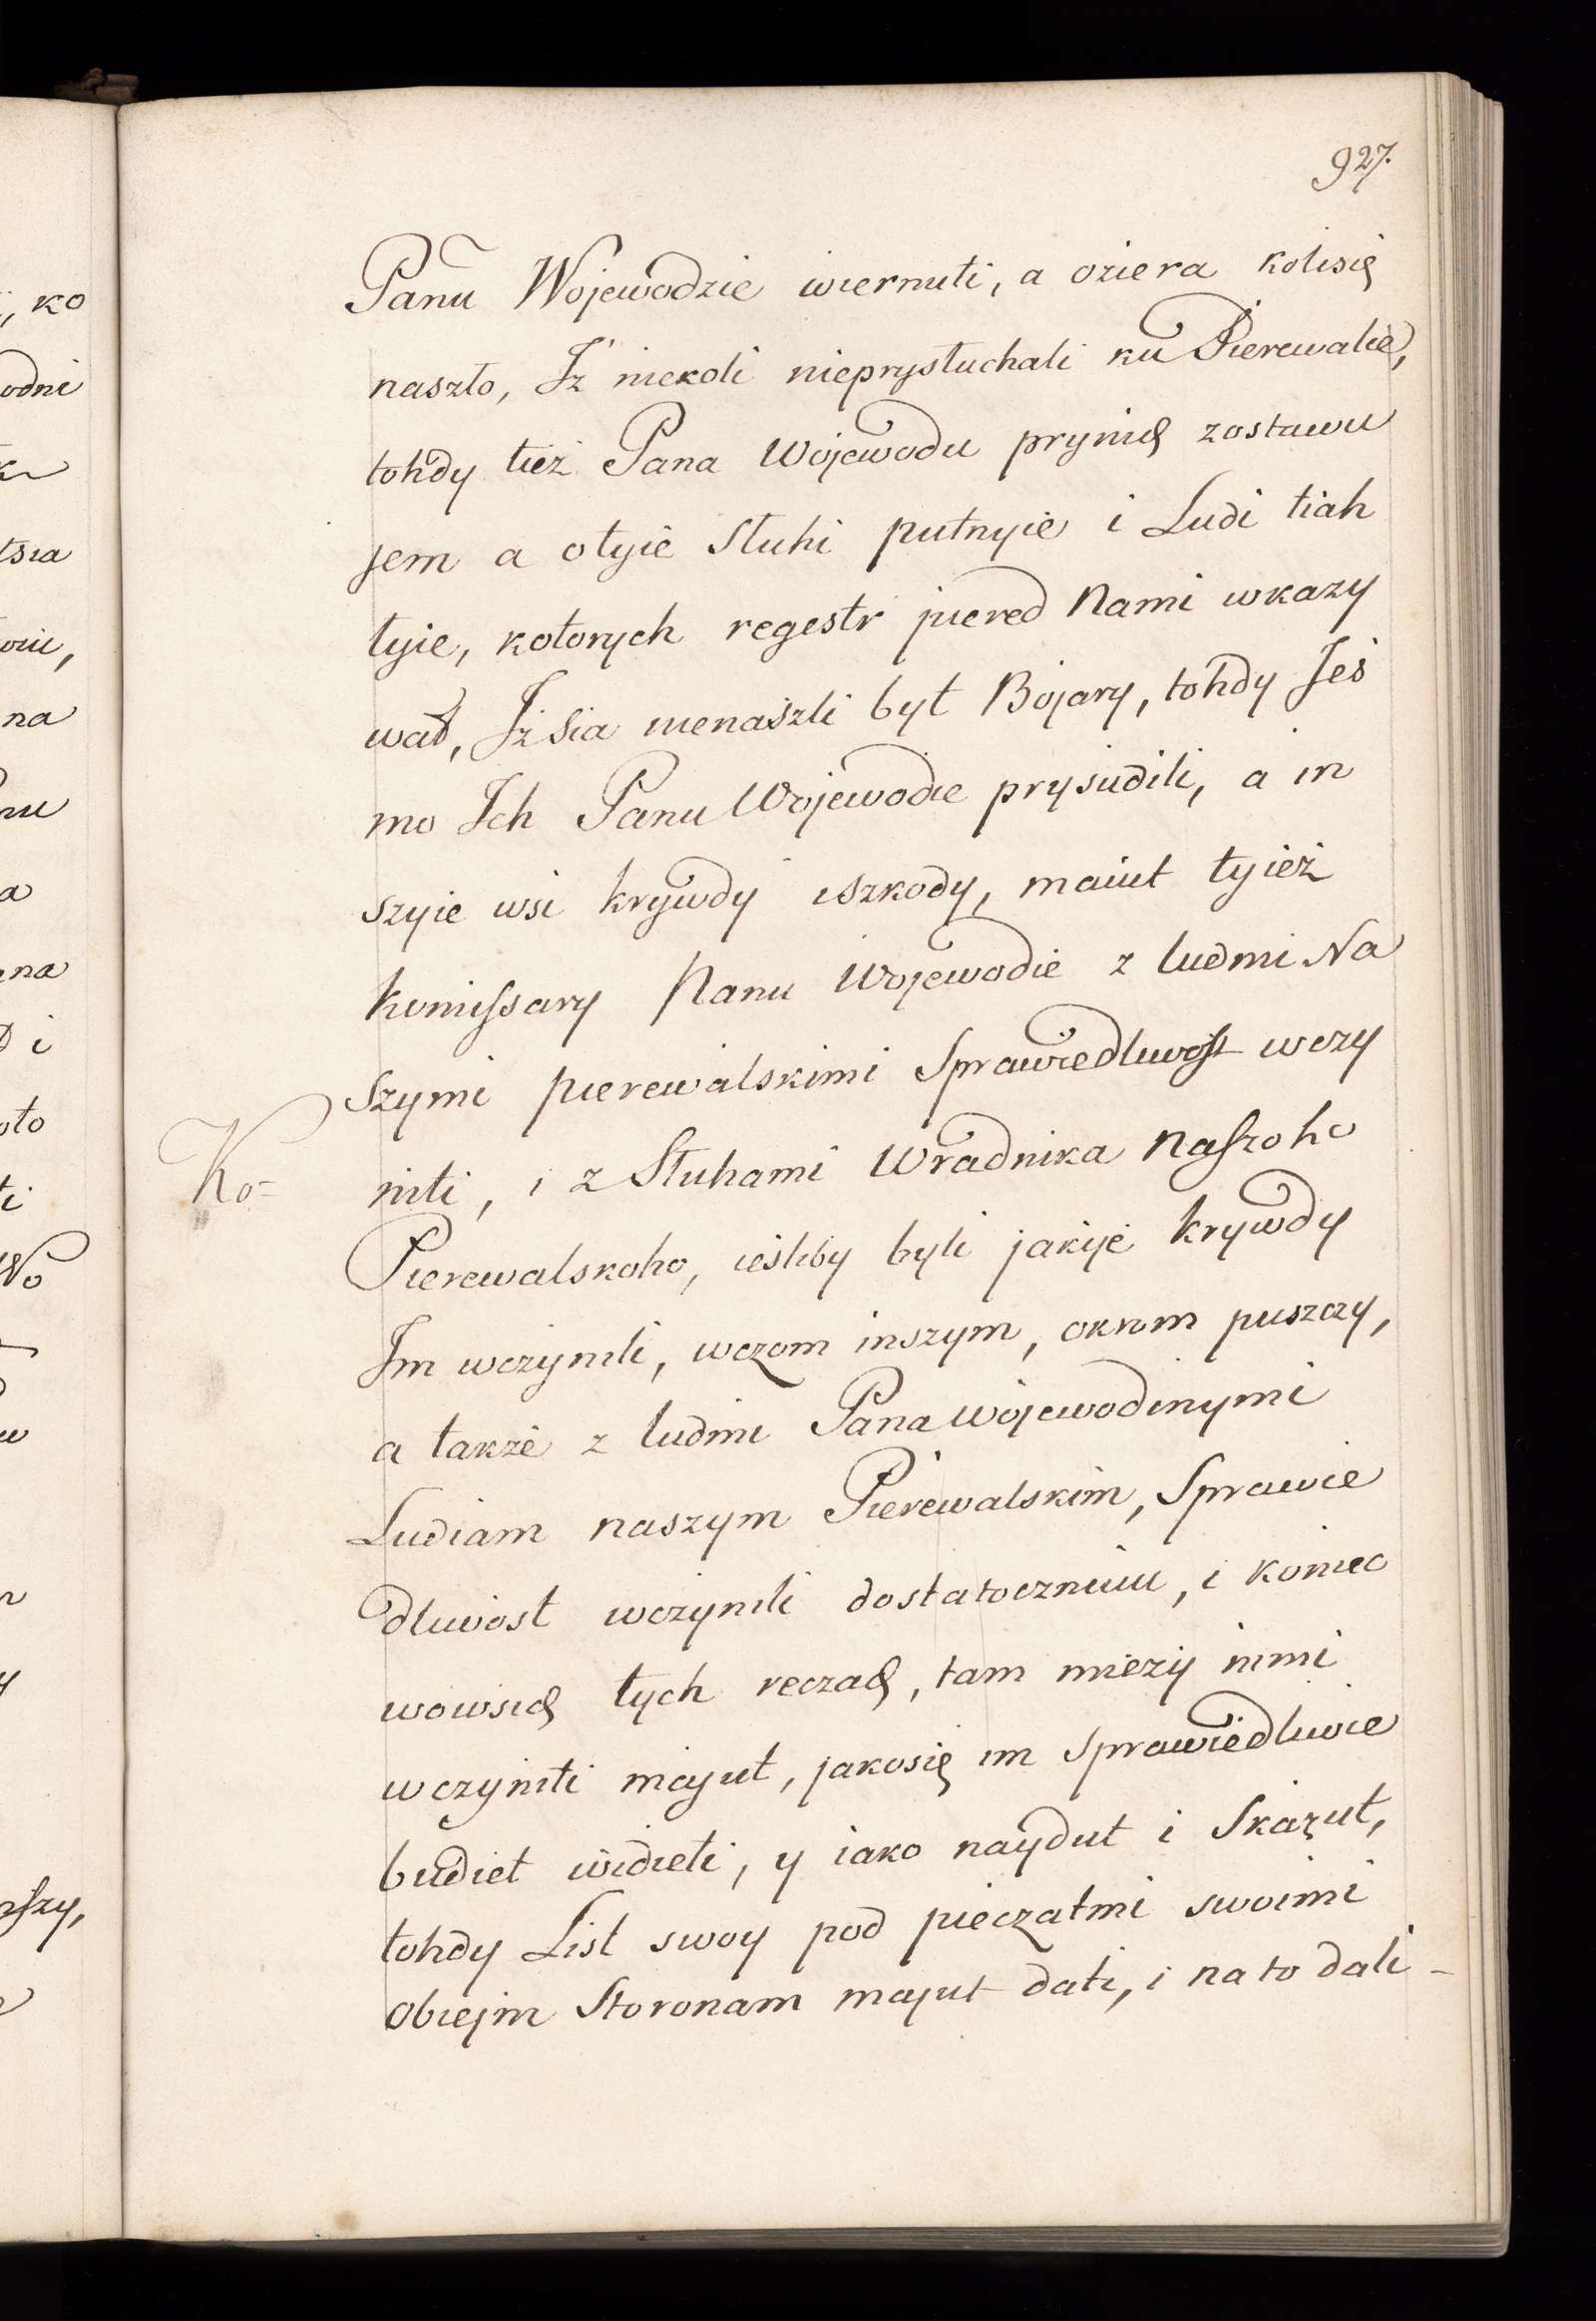 927.
Panu Wojewodzie wiernuti, a oziera kolisię
naszło, Iż niekoli nieprysłuchali ku Pierewalie,
tohdy tież Pana Wojewodu pry nich zostawu
jem a otyie Słuhi putnyie i Ludi tiah
łyie, kotorych regestr pered Nami wkazy
wał, Iż sia nienaszli był Bojary, tohdy Jes
mo Ich Panu Wojewodie prysudili, a in
szyie wsi krywdy iszkody, maiut tyież
komissary Panu Wojewodie z ludmi Na
szymi pierewalskimi Sprawiedlwost wczy
niti, i z Słuhami Wradnika Naszoho
Ko=
Pierewalskoho, ieśliby byli jakije krywdy
Im wczynili, wczom inszym, okrom puszczy,
a także z ludmi Pana Wojewodinymi
Ludiam naszym Pierewalskim, Sprawie
dliwost wczynili dostatoczniuiu, i koniec
wowsich tych reczach, tam mieży nimi
wczyniti majut, jakosię im sprawiedliwie
budiet widieti, y iako naydut i Skażut,
tohdy List swoy pod pieczatmi swoimi
Obiejm Storonam majut dati, i na to dali -
i, ko
odni
tsia
na
nu
a
na
i
oto
ti
Wo
w
y